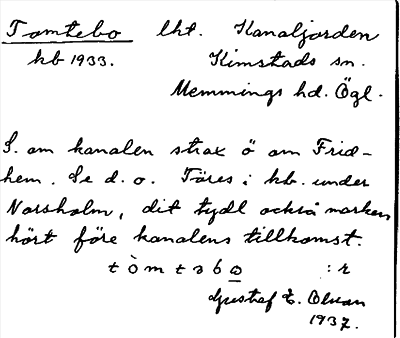 Tomtebo lht. Kanaljorden
hb 1933. Kimstads sn.
Memmings hd. Ögl.
S. om kanalen strax ö om Frid-
hem. Se d. o. Föres i hb. under
Norsholm, dit tydl också marken
hört före kanalens tillkomst.
tòmtəbo :r
Gustaf E.
1937.